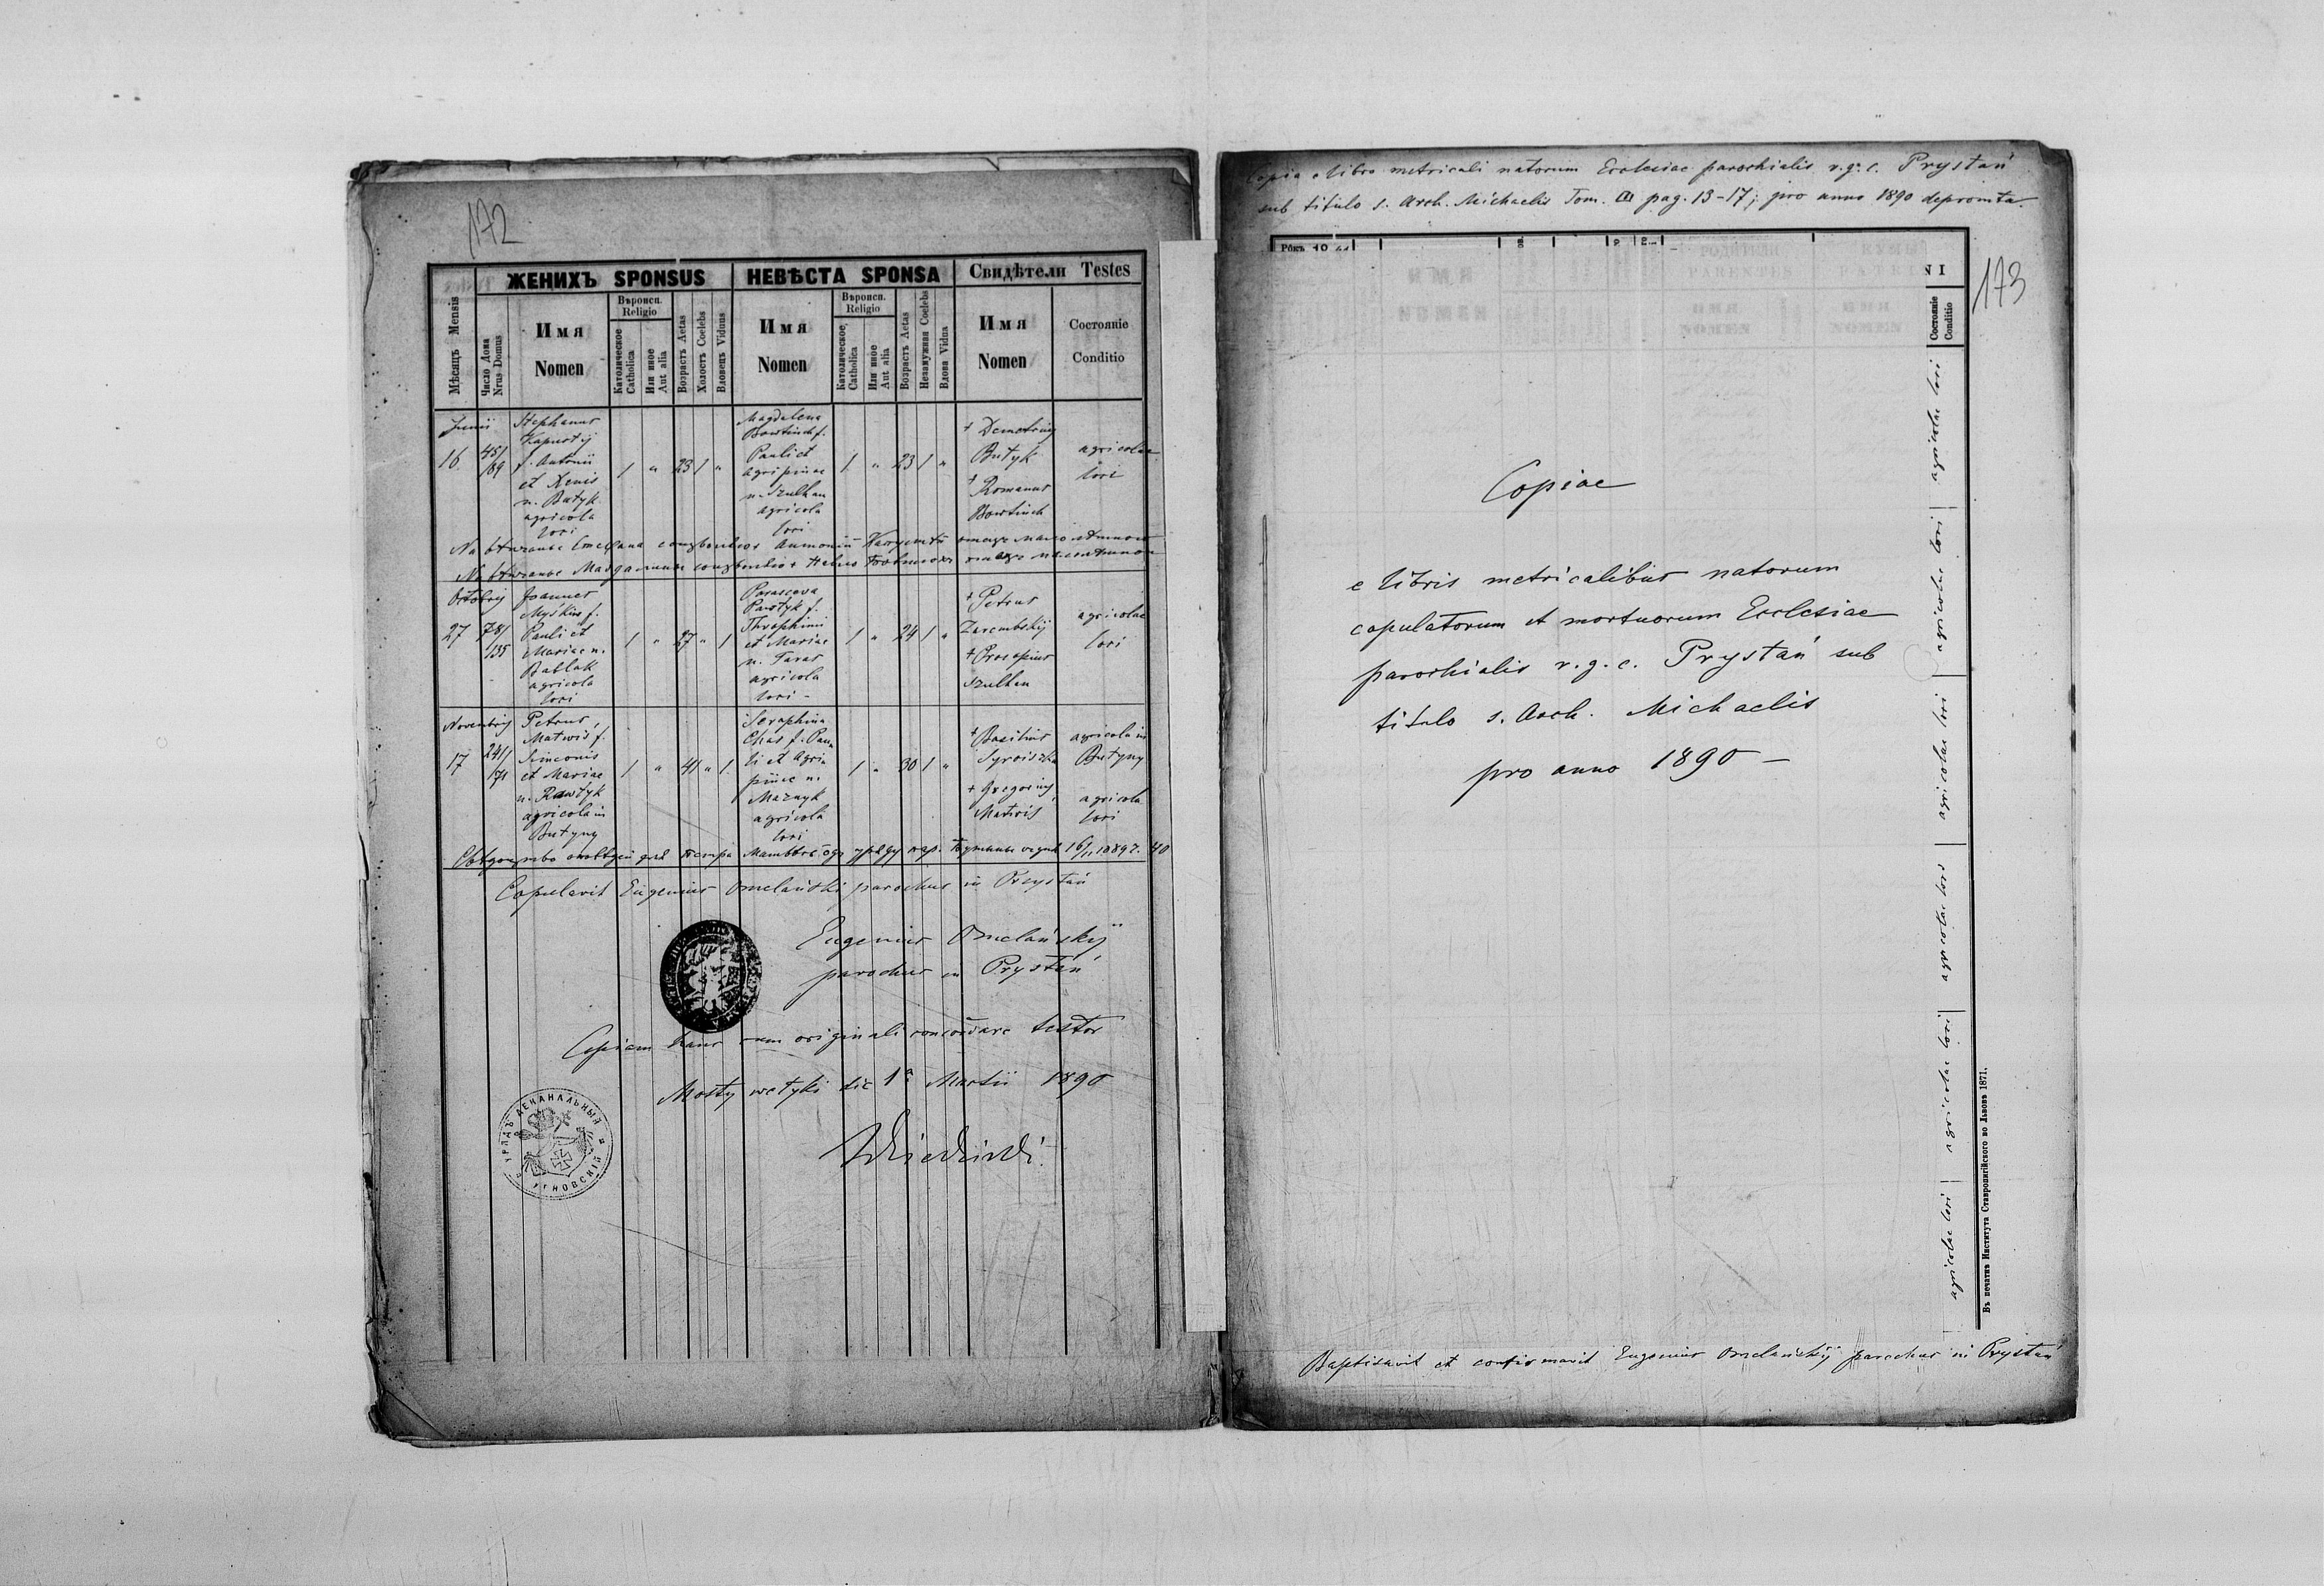 172
ЖЕНИХЪ SPONSUS
НЕВѢСТА SPONSA
Свидѣтели Testes
Мѣсяцъ Mensis
Число Дома
Nrus Domus
Имя
Nomen
Вѣроисп.
Religio
Католическое
Catholica
Или иное
Aut alia
Возрастъ Aetas
Холостъ Coelebs
Вдовецъ Viduus
Имя
Nomen
Вѣроисп.
Religio
Католическое
Catholica
Или иное
Aut alia
Возрастъ Aetas
Незамужная Coelebs
Вдова Vidua
Имя
Nomen
Состояніе
Conditio
Junii
16.
45/
89
Stephanus
Kapustij
f. Antonii
et Xenis
n. Butyk
agricola
lori
1 " 23 1 "
Magdalena
Bowtiuch f.
Pauli et
Agripinae
n. Szulhan
agricola
lori
1 " 23 1 "
+ Demetrius
Butyk
+ Romanus
Bowtiuch
agricolae
lori
Octobris
27
78/
135
Joannes
Myśkiw f.
Pauli et
Mariae n.
Bablak
agricola
lori
1 " 27 " 1
Parasceva
Pawtyk f.
Throphimi
et Mariae
n. Taras
agricola
lori -
1 " 24 1 "
+ Petrus
Zarembskij
+ Procopius
Szulhan
agricolae
lori
Novembris
17
241/
171
Petrus
Matwis f.
Simeonis
et Mariae
n. Rawtyk
agricola in
Butyny
1 " 41 " 1.
Seraphina
Chas f. Pau
li et Agri
pinae n.
Maznyk
agricola
lori
1 " 30 1 "
+ Basilius
Syroiszka
+ Gregorius
Matwis
agricola in
Butyny
agricola
lori
Copulavit Eugenius Omelański parochus in Prystań
Eugenius Omelańskij
parochus in Prystań
Copiam hanc cum originali concordare testor
Mosty wetyki die 1ª Martii 1890
УРЯДЪ ДЕКАНАЛЬНЫЙ
УГНОВСКІЙ
Copia e libro metricali natorum Ecclesiae parochialis r.g.c. Prystań
sub titulo s. Arch. Michaelis Tom. III pag. 13-17; pro anno 1890 depromta.
173
Рокъ 18
NI
Состояніе
Conditio
Copiae
e libris metricalibus natorum
copulatorum et mortuorum Ecclesiae
parochialis r.g.c. Prystań sub
titulo s. Arch. Michaelis
pro anno 1890 —
agricolae lori
agricolae lori
agricolae lori
agricolae lori
agricolae lori
agricolae lori
Въ печатнѣ Института Ставропигійского во Львовѣ 1871.
Baptisavit et confirmavit Eugenius Omelańskij parochus in Prystań